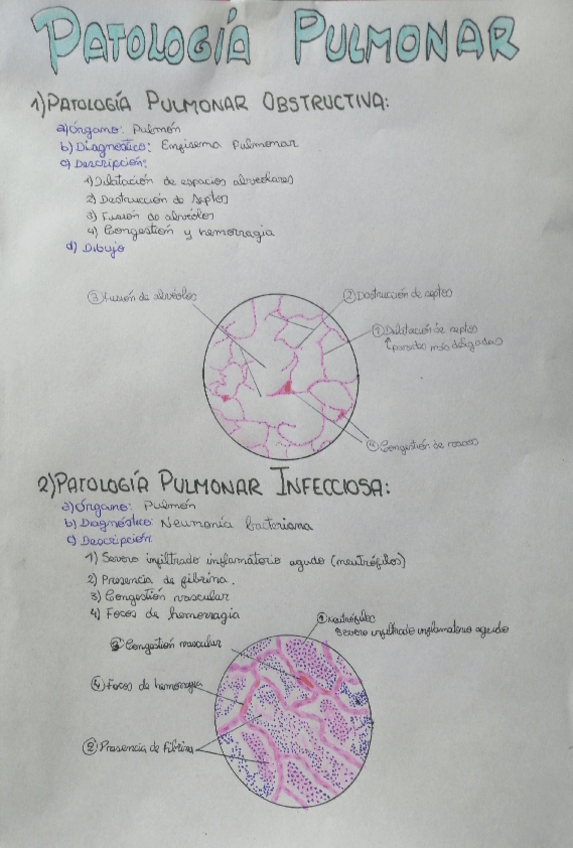 PATOLOGÍA PULMONAR
1) PATOLOGÍA PULMONAR OBSTRUCTIVA:
a) Órgano: Pulmón
b) Diagnóstico: Enfisema Pulmonar
c) Descripción:
1) Dilatación de espacios alveolares
2) Destrucción de septos
3) Fusión de alvéolos
4) Congestión y hemorragia
d) Dibujo
③ Fusión de alvéolos
② Destrucción de septos
① Dilatación de septos
(paredes más delgadas)
④ Congestión de vasos
2) PATOLOGÍA PULMONAR INFECCIOSA:
a) Órgano: Pulmón
b) Diagnóstico: Neumonía bacteriana
c) Descripción:
1) Severo infiltrado inflamatorio agudo (neutrófilos)
2) Presencia de fibrina.
3) Congestión vascular
4) Focos de hemorragia
① neutrófilos
Severo infiltrado inflamatorio agudo
③ Congestión vascular
④ Focos de hemorragia
② Presencia de fibrina